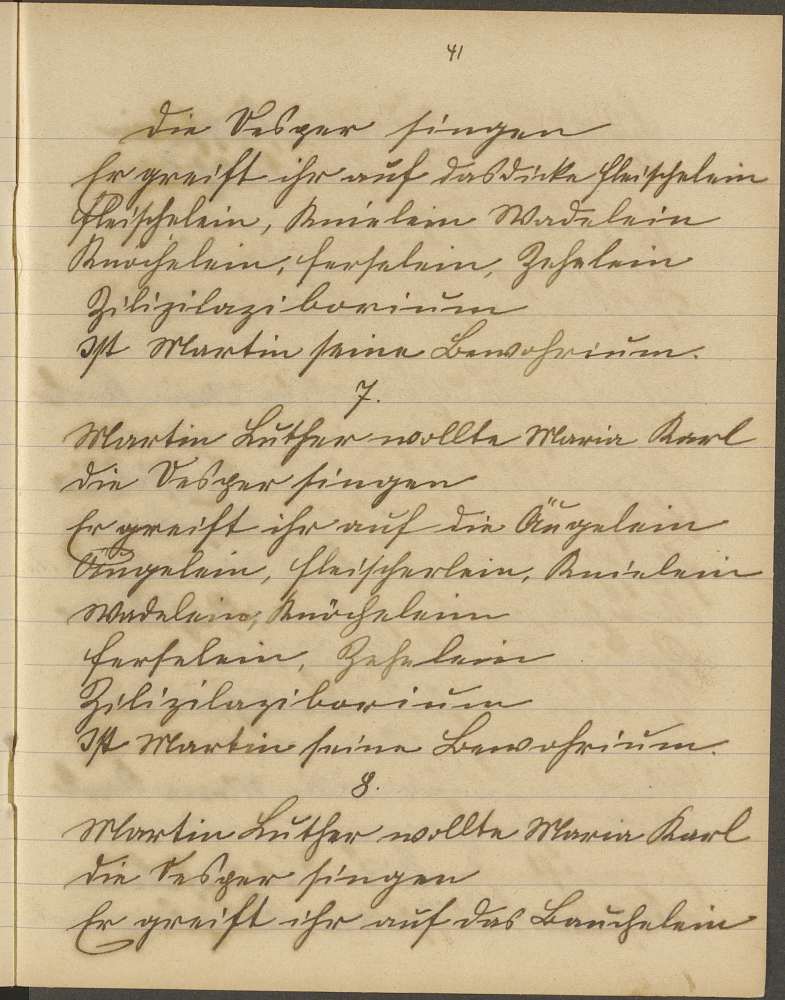 41
die Vesper singen
Er greift ihr auf das dicke Fleischelein
Fleischelein, Knielein Wadelein
Knöchelein, Ferselein, Zehelein
Zilizilaziborium
Ist Martin seine Bewohrium.
7.
Martin Luther wollte Maria Karl
die Vesper singen
Er greift ihr auf die Äugelein
Äugelein, Fleischerlein, Knielein
Wadelein, Knöchelein
Ferselein, Zehelein
Zilizilaziborium
Ist Martin seine Bewohrium.
8.
Martin Luther wollte Maria Karl
die Vesper singen
Er greift ihr auf das Bauchelein